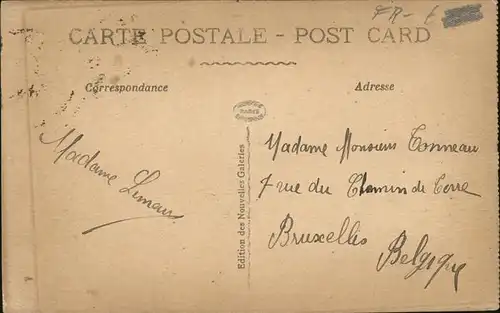 FR-
CARTE POSTALE - POST CARD
Correspondance
Adresse
Madame
Edition des Nouvelles Galeries
Madame Monsieur Tonneau
7 rue du Chemin de Terre
Bruxelles
Belgique